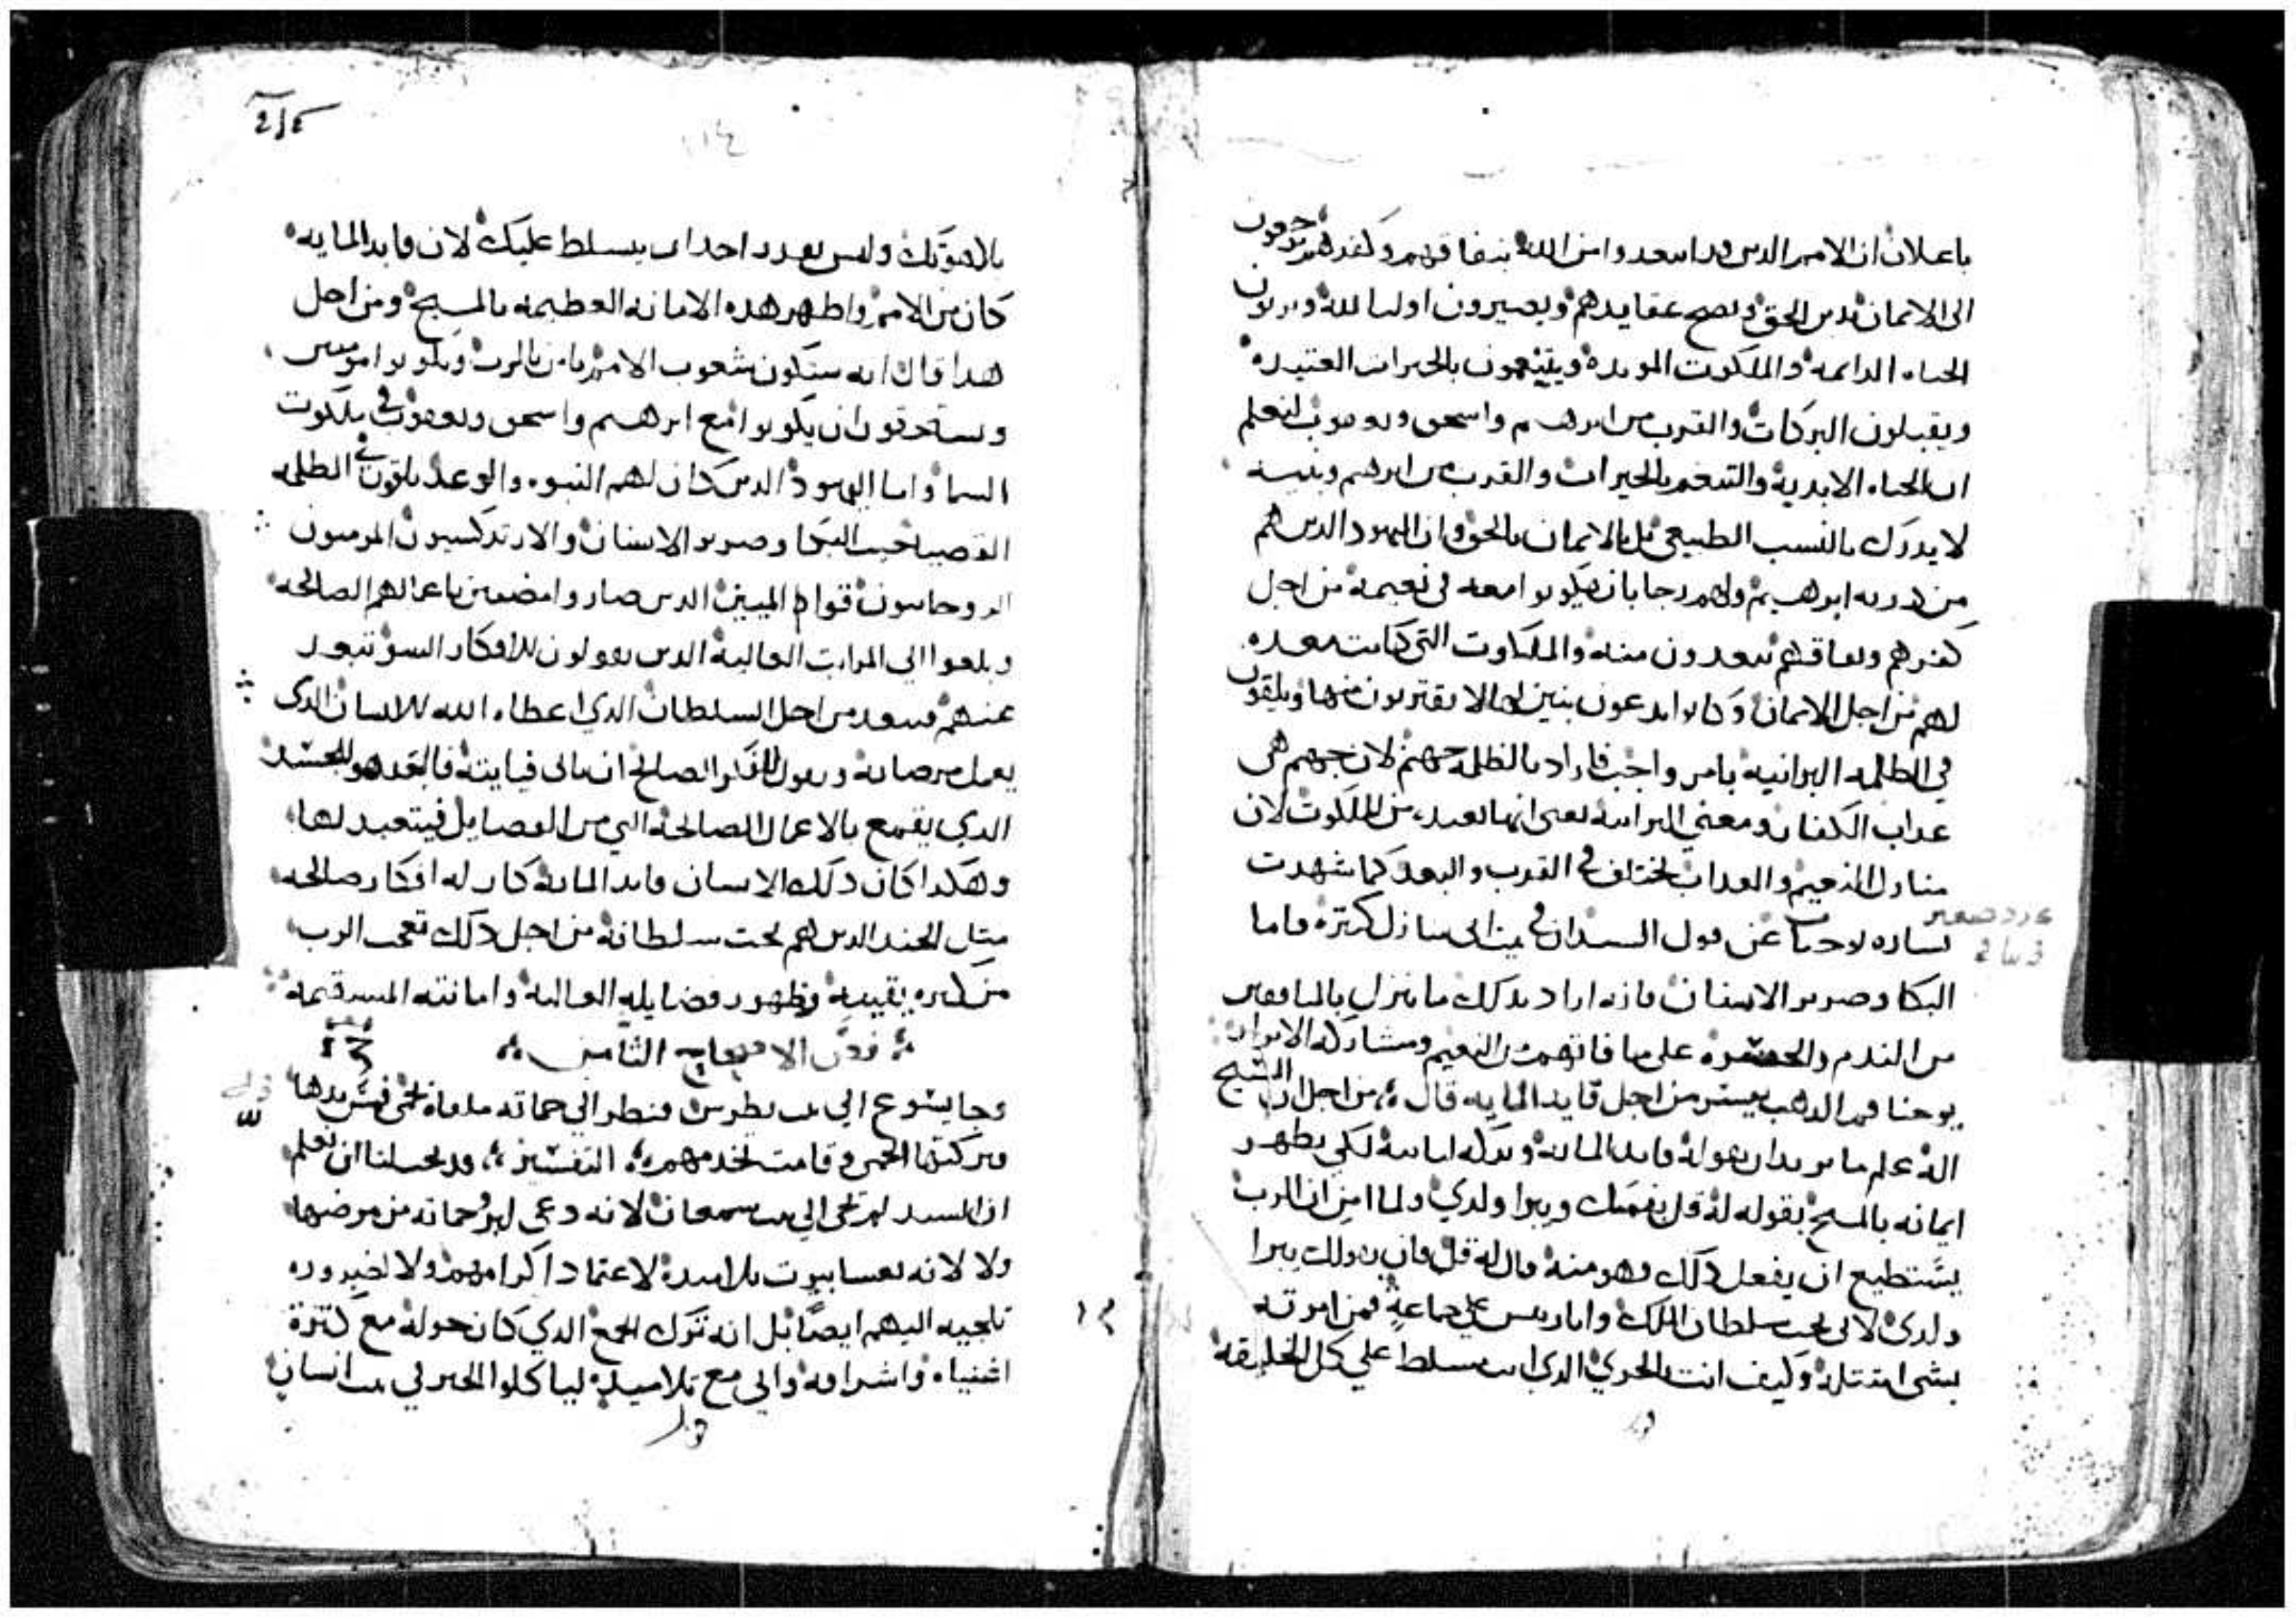 باعلان ان الامم الدين قد ابتعدوا من الله بنفاقهم وكفرهم يرجعون
الى الايمان بدين الحق وتصح عقايدهم ويصيرون اوليا لله ويرثون
الحياه الدايمه والملكوت الموبده ويتنعمون بالخيرات العتيده
ويقبلون البركات والقرب من ابرهيم واسحق ويعقوب لنعلم
ان الحياه الابدية والتنعم بالخيرات والقرب من ابرهيم وبنيه
لا يدرك بالنسب الطبيعي بل بالايمان بالحق وان اليهود الدين هم
من درية ابرهيم ولهم رجا بان يكونوا معه في نعيمه من اجل
كفرهم ونفاقهم يبعدون منه والملكوت التي كانت معده
لهم من اجل الايمان وكانوا يدعون بنين لها لا يقتربون منها ويلقون
في الظلمه البرانيه بامر واجب فاراد بالظلمه جهنم لان جهنم هي
عداب الكفار ومعني البرانيه يعني انها بعيده من الملكوت لان
منازل النعيم والعداب تختلف في القرب والبعد كما شهدت
بشاره يوحنا عن قول السيد ان في بيت ابي منازل كتيرة فاما
البكا وصرير الاسنان فانه اراد بدلك ما ينزل بالمنافقين
من الندم والحسره على ما فاتهم من النعيم ومشاركة الابرار
يوحنا فم الدهب يفسر من اجل قايد المايه قال من اجل ان المسيح
اله علم ما يريد ان يقوله قايد المايه وتركه لكي يظهر
ايمانه بالمسيح بقوله له قل بفمك ويبرا ولدي ولما امن ان الرب
يستطيع ان يفعل دلك وهو منه قال له قل فان بقولك يبرا
ولدي لاني تحت سلطان الملك وانا ريس على جماعة فمن امرته
بشي امتتله وكيف انت الحري الدي انت مسلط علي كل الخليقه
214
بلاهوتك وليس يقدر احد ان يسلط عليك لان قايد المايه
كان من الامم واظهر هده الامانه العظيمه بالمسيح ومن اجل
هدا قال انه ستكون شعوب الامم يامن بالرب ويكونوا مومنين
ويستحقون ان يكونوا مع ابرهيم واسحق ويعقوب في ملكوت
السما واما اليهود الدين كان لهم النبوه والوعد يلقون في الظلمه
القصيا حيت البكا وصرير الاسنان والارتدكسيون المومنون
الروحانيون قواد الميين الدين صاروا مضيين باعمالهم الصالحه
وبلغوا الي المراتب العاليه الدين يقولون للافكار السو تبعد
عنهم فتبعد من اجل السلطان الدي اعطاه الله للانسان الدي
يعمل مرضاته ويقول للفكر الصالح ان ياتي فياتيه فالعبد هو الجسد
الدي يقمع بالاعمال الصالحه التي من الفضايل فيتعبد لها
وهكدا كان دلك الانسان قايد المايه كان له افكار صالحه
متل الجند الدين هم تحت سلطانه من اجل دلك تعجب الرب
من كتره يقينه وظهور فضايله العاليه وامانته المستقيمه
فص الاصحاح التامن
وجا يسوع الي بيت بطرس فنظر الي حماته ملقاه تحمى فمس يدها
فتركتها الحمى وقامت تخدمهم التفسير قد يجب لنا ان نعلم
ان السيد لم يجي الي بيت سمعان لانه دعي ليبرو حماته من مرضها
ولا لانه يغشا بيوت تلاميده لاعتماد اكرامهم ولا لضروره
تلجيه اليهم ايضا بل انه ترك الجمع الدي كان حوله مع كترة
اغنياه واشرافه واتي مع تلاميده لياكلوا الخبز في بيت انسان